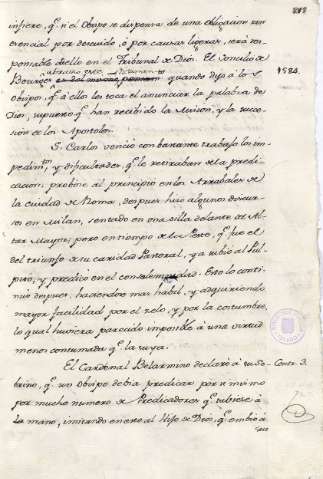 infiere, qe si el Obispo se dispensa de una obligacion tan
esencial por descuido, ó por causas ligeras, será res-
ponsable de ello en el Tribunal de Dios. El Concilio de
Bourges quando dijo a los
Obispos, qe á ellos les toca el anunciar la palabra de
Dios, supuesto qe han recibido la Mision, y la succe-
sion de los Apostoles.
S. Carlos venció con bastante trabajo los im-
pedimtos y dificultades qe le retiraban de la predi-
cacion; probose al principio en los Arrabales de
la Ciudad de Roma, despues hizo algunos discur-
sos en Milan, sentado en una silla delante del Al-
tar Mayor; pero en tiempo de la Peste, qe fue el
del triunfo de su caridad Pastoral, ya subió al Pul-
pito, y predicó en el con solemnidad. Esto lo conti-
nuó despues, haciendose mas habil, y adquiriendo
mayor facilidad por el zelo, y por la costumbre,
lo qual huviera parecido imposible á una virtud
menos consumada qe la suya.
El Cardenal Belarmino declaró á su So-
brino, qe un Obispo debia predicar por si mismo
por mucho numero de Predicadores qe tubiese á
la mano, imitando en esto al Hijo de Dios, qe embió á
1584.